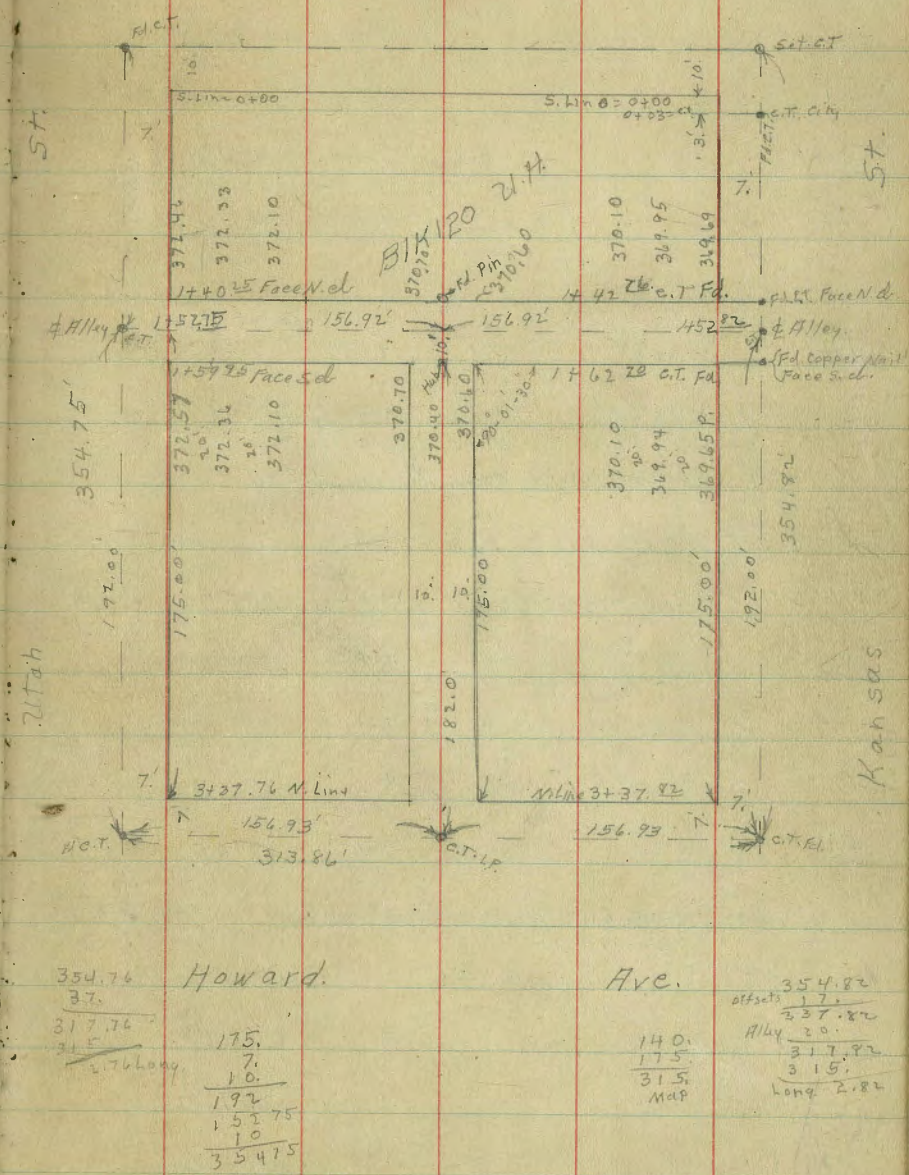 Fd. C.T.
Set. C.T
10.
10.
S. Line 0+00
S. Line = 0+00
0+03=
3.
C.T. City
Fd C.T.
7.
7.
St.
St.
372.46
372.33
372.10
Blk 120 U.H.
370.70
Fd. Pin
370.60
370.10
369.95
369.69
1+40 25 Face N. cb
1+42 76 C.T Fd.
Fd. C.T. Face N. cb
¢ Alley
C.T.
1+52.75
156.92'
156.92'
1+52 82
¢ Alley
10.
1+59 95 Face S. cb
1+62 70 C.T. Fd
Fd. Copper Nail
Face S. cb.
372.57
20'
372.36
20'
372.10
370.70
370.40
370.60
90-01-30
370.10
20'
369.94
20'
369.65 P.
354.75'
354.82'
192.00'
175.00'
10.
10.
175.00
175.00'
192.00'
182.0'
Utah
Kansas
7.'
3+37.76 N. Line
N. Line 3+37.82
7.'
7.
156.93'
156.93
7.
Fd C.T.
313.86'
C.T. LP.
C.T. Fd.
Howard.
Ave.
354.76
37.
317.76
315
2.76 Long
175.
7.
10.
192
152 75
10
354 75
140.
175.
315.
Map
354.82
offsets 17.
337.82
Alley 20.
317.82
315.
Long 2.82